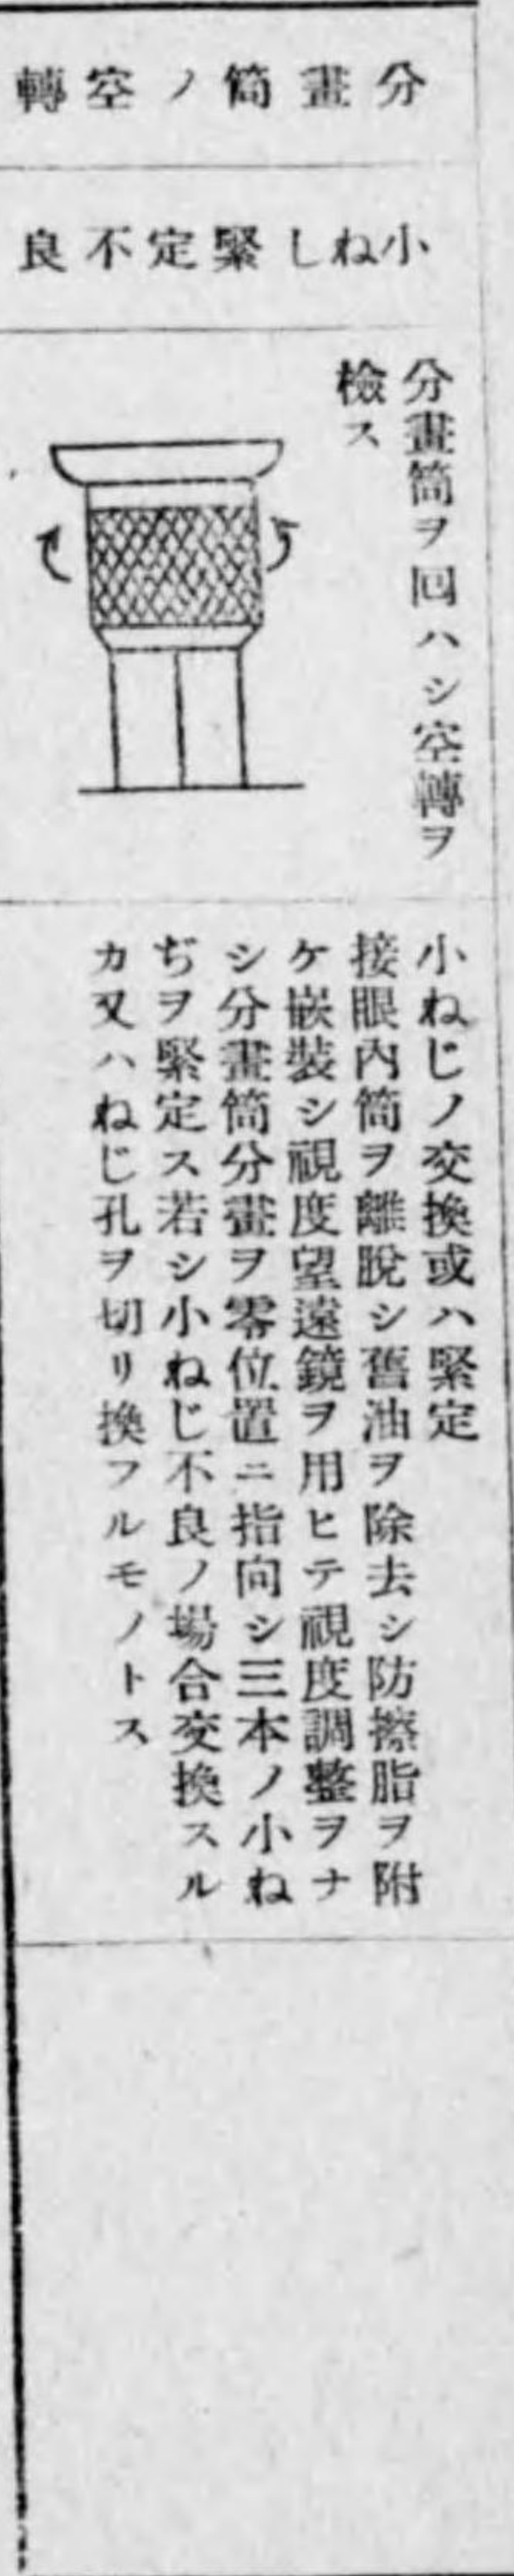 分畫筒ノ空轉
小ねし緊定不良
分畫筒ヲ回ハシ空轉ヲ
檢ス
小ねじノ交換或ハ緊定
接眼內筒ヲ離脫シ舊油ヲ除去シ防擦脂ヲ附
ケ嵌裝シ視度望遠鏡ヲ用ヒテ視度調整ヲナ
シ分畫筒分畫ヲ零位置ニ指向シ三本ノ小ね
ぢヲ緊定ス若シ小ねじ不良ノ場合交換スル
カ又ハねじ孔ヲ切リ換フルモノトス